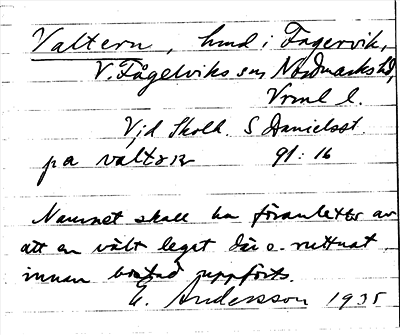 Valtern, hmd i Fagervik,
V. Fågelviks sn, Nordmarks hd,
Vrml l.
Vid Skolh. S Danielsst.
på valtərn 91:16
Namnet skall ha föranletts av
att en vält legat där o. ruttnat
innan bostad uppförts.
E. Andersson 1935